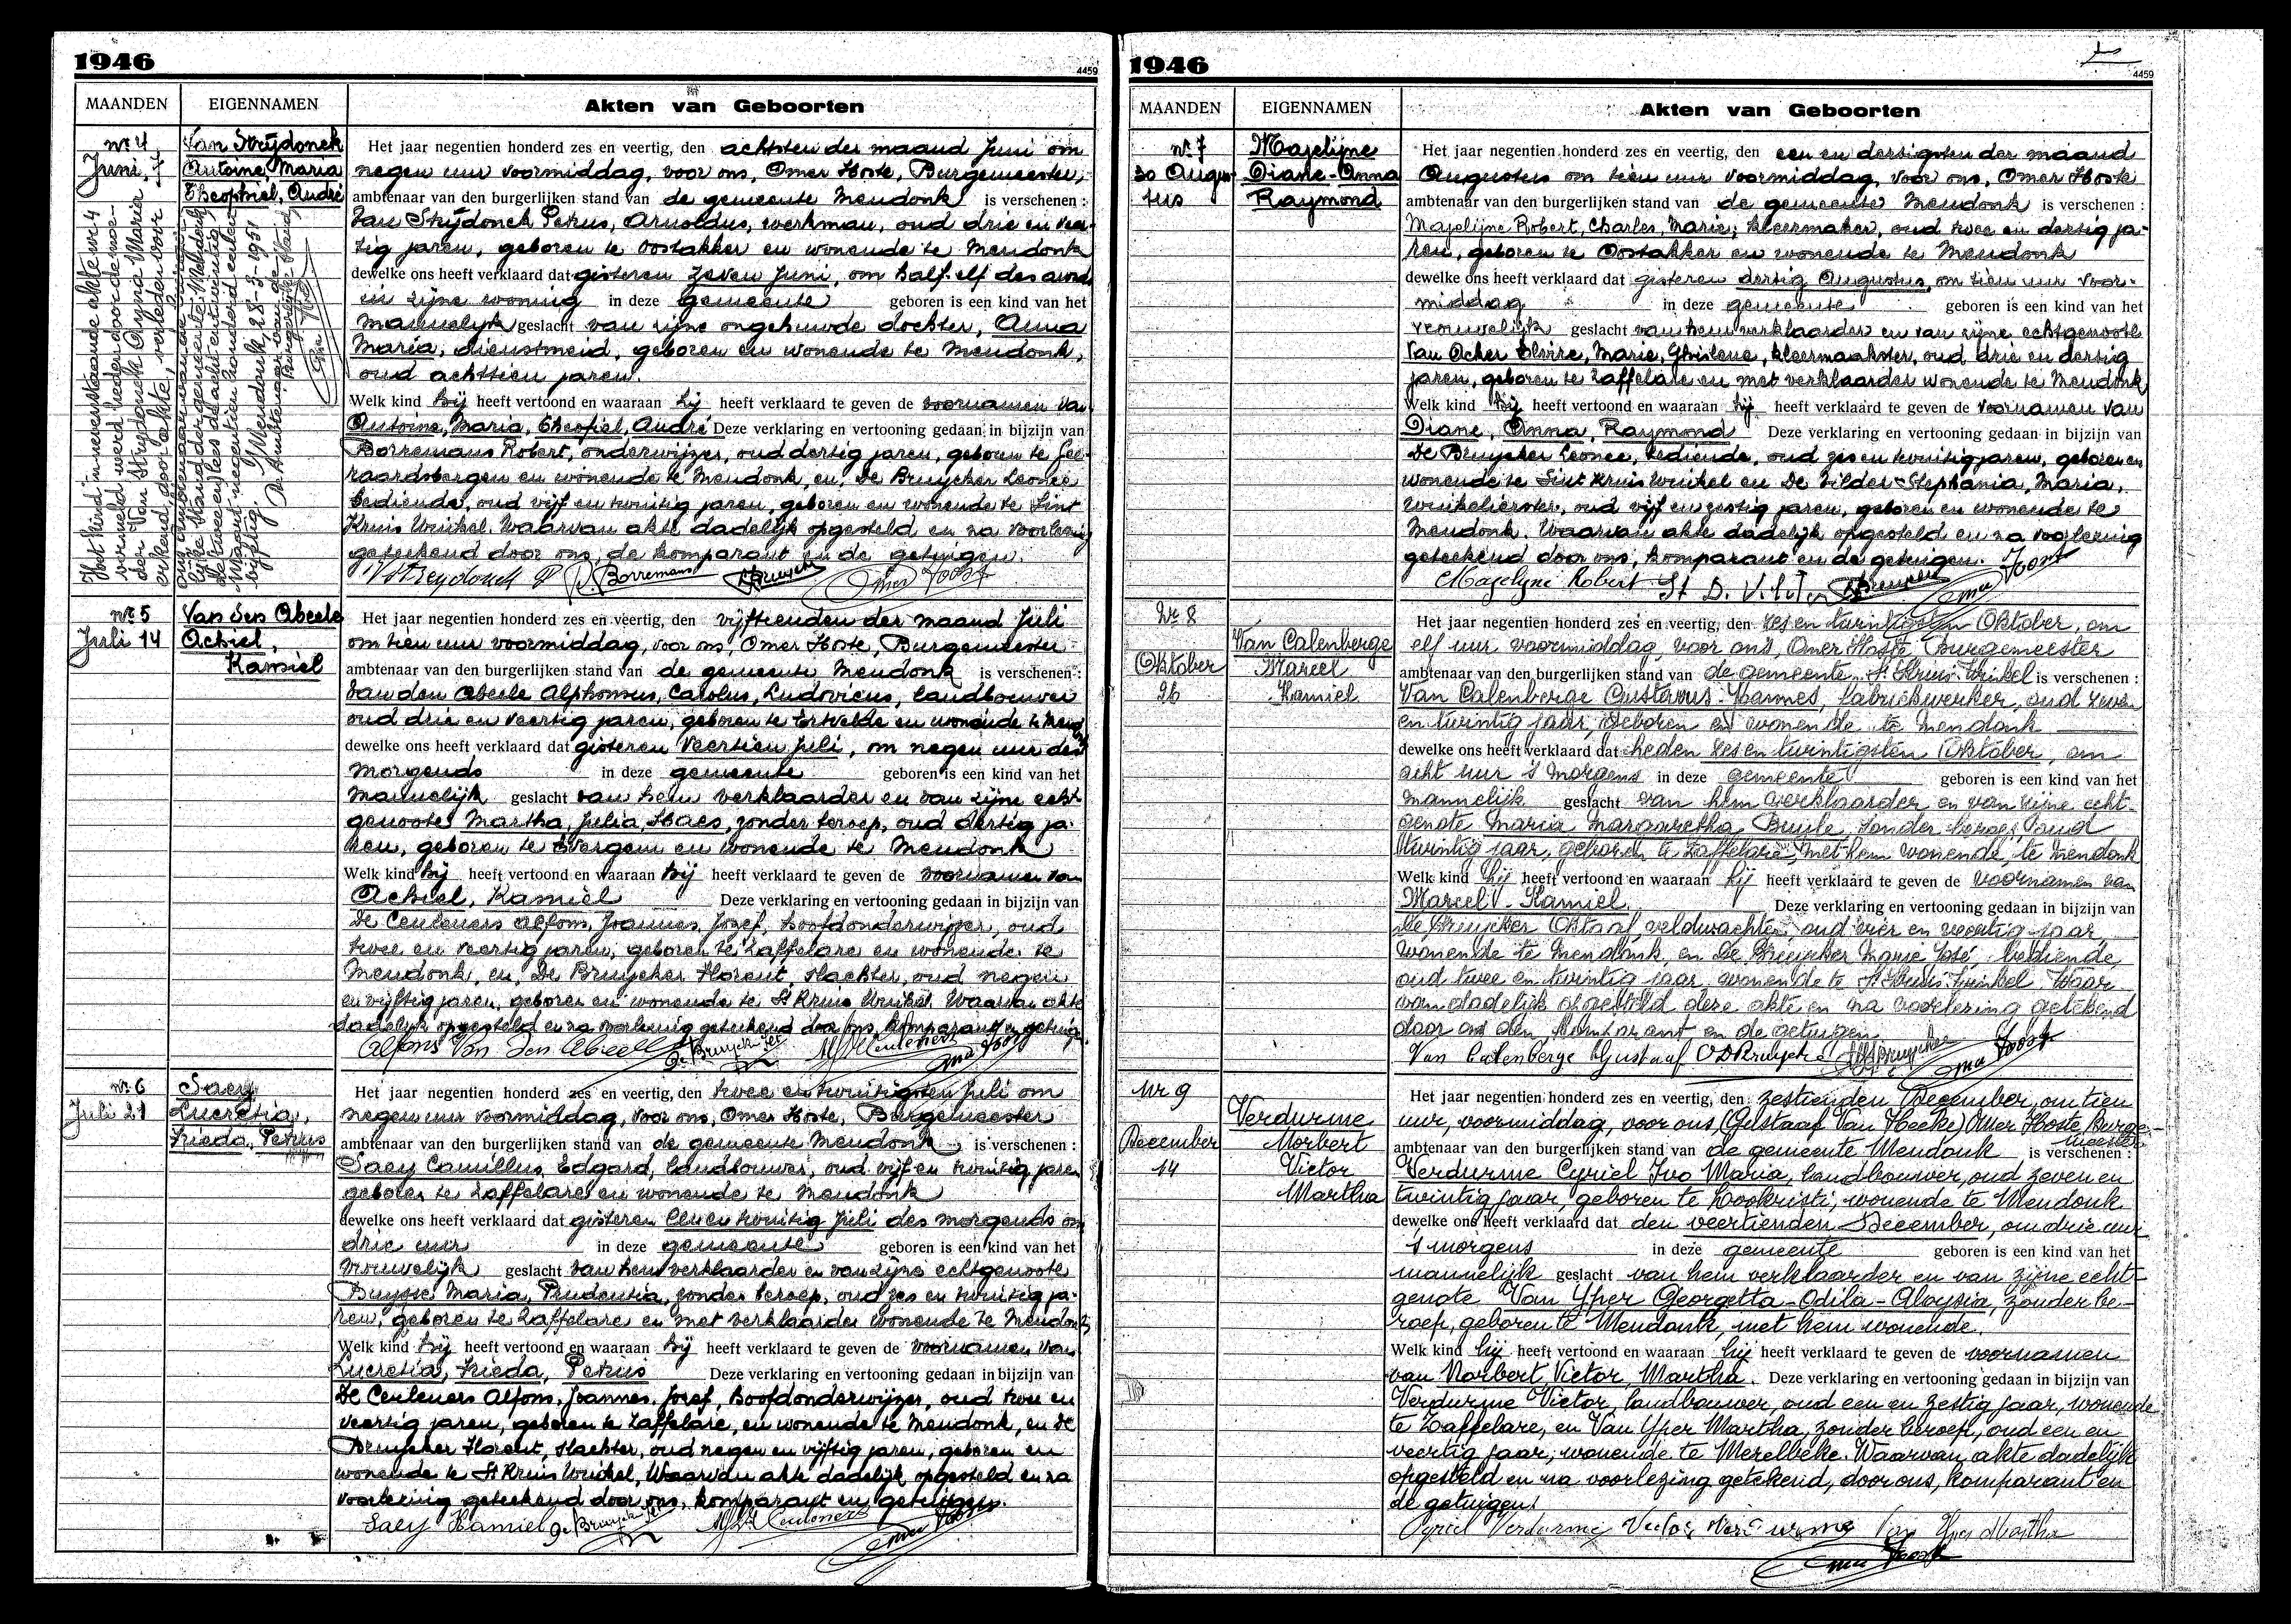 1946
4459
MAANDEN EIGENNAMEN Akten van Geboorten
nr 4
Juni, 7
Van Strydonck
Antoine Maria
Theophiel, André
Het kind in nevenstaande akte nr 4
vermeld werd heden door de moe-
der Van Strydonck Anna Maria
erkend door akte, verleden voor
ons ambtenaar van den burger-
lijke stand der gemeente Mendonck
de tweeentwintig
Maart negentien honderd een en
vijftig.
Mendonk 28-3-1951
De Ambtenaar van de
Burgerlijke Stand,
Het jaar negentien honderd zes en veertig, den achtsten der maand Juni om
negen uur voormiddag, voor ons, Omer Hoste, Burgemeester,
ambtenaar van den burgerlijken stand van de gemeente Mendonk is verschenen :
Van Strydonck Petrus, Arnoldus, werkman, oud drie en veer-
tig jaren, geboren te Oostakker en wonende te Mendonk
dewelke ons heeft verklaard dat gisteren zeven Juni, om half elf des avonds
in zijne woning in deze gemeente geboren is een kind van het
mannelijk geslacht van zijne ongehuwde dochter, Anna
Maria, dienstmeid, geboren en wonende te Mendonk,
oud achttien jaren.
Welk kind hij heeft vertoond en waaraan hij heeft verklaard te geven de voornamen van
Antoine, Maria, Theofiel, André Deze verklaring en vertooning gedaan in bijzijn van
Borremans Robert, onderwijzer, oud dertig jaren, geboren te Gee-
raardsbergen en wonende te Mendonk, en, De Bruycker Leonce
bediende, oud vijf en twintig jaren, geboren en wonende te Sint
Kruis Winkel. Waarvan akte dadelijk opgesteld en na voorlezing
geteekend door ons, de komparant en de getuigen.
V Strydonck P R. Borremans LBruycker Omer Hoste
nr 5
Juli 14
Van Den Abeele
Achiel,
Kamiel
Het jaar negentien honderd zes en veertig, den vijftienden der maand Juli
om tien uur voormiddag, voor ons, Omer Hoste, Burgemeester
ambtenaar van den burgerlijken stand van de gemeente Mendonk is verschenen :
Van den Abeele Alphonsus, Carolus, Ludovicus, landbouwer
oud drie en veertig jaren, geboren te Ertvelde en wonende te Mend
dewelke ons heeft verklaard dat gisteren veertien Juli, om negen uur des
morgends in deze gemeente geboren is een kind van het
mannelijk geslacht van hem verklaarder en van zijne echt
genoote Martha, Julia, Haes, zonder beroep, oud dertig ja-
ren, geboren te Evergem en wonende te Mendonk
Welk kind hij heeft vertoond en waaraan hij heeft verklaard te geven de voornamen van
Achiel, Kamiel Deze verklaring en vertooning gedaan in bijzijn van
De Ceuleners Alfons, Joannes, Jozef, hoofdonderwijzer, oud
twee en veertig jaren, geboren te Zaffelare en wonende te
Mendonk, en, De Bruycker Florent, slachter, oud negen
en vijftig jaren, geboren en wonende te St Kruis Winkel. Waarvan akte
dadelijk opgesteld en na voorlezing geteekend door ons, komparant en getuig.
Alfons Van Den Abeele De Bruycker Ceuleners Omer Hoste
nr 6
Juli 21
Saey
Lucresia,
Frieda, Petrus
Het jaar negentien honderd zes en veertig, den twee en twintigsten Juli om
negen uur voormiddag, voor ons, Omer Hoste, Burgemeester
ambtenaar van den burgerlijken stand van de gemeente Mendonk is verschenen :
Saey Camillus, Edgard, landbouwer, oud vijf en twintig jaren
geboren te Zaffelare en wonende te Mendonk
dewelke ons heeft verklaard dat gisteren een en twintig Juli des morgends om
drie uur in deze gemeente geboren is een kind van het
vrouwelijk geslacht van hem verklaarder en van zijne echtgenoote
Buysse Maria, Prudentia, zonder beroep, oud zes en twintig ja-
ren, geboren te Zaffelare en met verklaarder wonende te Mendonk
Welk kind hij heeft vertoond en waaraan hij heeft verklaard te geven de voornamen van
Lucresia, Frieda, Petrus Deze verklaring en vertooning gedaan in bijzijn van
De Ceuleners Alfons, Joannes, Jozef, hoofdonderwijzer, oud twee en
veertig jaren, geboren te Zaffelare, en wonende te Mendonk, en De
Bruycker Florent, slachter, oud negen en vijftig jaren, geboren en
wonende te St Kruis Winkel, Waarvan akte dadelijk opgesteld en na
voorlezing geteekend door ons, komparant en getuigen.
Saey Kamiel De Bruycker Ceuleners Omer Hoste
1946
4459
MAANDEN EIGENNAMEN Akten van Geboorten
nr 7
30 Augus-
tus
Magelijne
Diane-Anna
Raymond
Het jaar negentien honderd zes en veertig, den een en dertigsten der maand
Augustus om tien uur voormiddag, voor ons, Omer Hoste
ambtenaar van den burgerlijken stand van de gemeente Mendonk is verschenen :
Magelijne Robert, Charles, Marie, kleermaker, oud twee en dertig ja-
ren, geboren te Oostakker en wonende te Mendonk
dewelke ons heeft verklaard dat gisteren dertig Augustus, om tien uur voor-
middag in deze gemeente geboren is een kind van het
vrouwelijk geslacht van hem verklaarder en van zijne echtgenoote
Van Acker Elvire, Marie, Ghislene, kleermaakster, oud drie en dertig
jaren, geboren te Zaffelare en met verklaarder wonende te Mendonk
Welk kind hij heeft vertoond en waaraan hij heeft verklaard te geven de voornamen van
Diane, Anna, Raymond Deze verklaring en vertooning gedaan in bijzijn van
De Bruycker Leonce, bediende, oud zes en twintig jaren, geboren en
wonende te Sint Kruis Winkel en De Vilder Stephania, Maria,
winkelierster, oud vijf en zestig jaren, geboren en wonende te
Mendonk. Waarvan akte dadelijk opgesteld en na voorlezing
geteekend door ons, komparant en de getuigen.
Magelijne Robert St D. Vilder LBruycker Omer Hoste
Nr 8
Oktober
26
Van Calenberge
Marcel
Kamiel
Het jaar negentien honderd zes en veertig, den zes en twintigsten Oktober, om
elf uur voormiddag, voor ons, Omer Hoste Burgemeester
ambtenaar van den burgerlijken stand van de gemeente St Kruis-Winkel is verschenen :
Van Calenberge Gustavus-Joannes, fabriekwerker, oud zeven
en twintig jaar, geboren en wonende te Mendonk
dewelke ons heeft verklaard dat heden zes en twintigsten Oktober, om
acht uur 's morgens in deze gemeente geboren is een kind van het
mannelijk geslacht van hem verklaarder en van zijne echt-
genote Maria Margaretha Buyle, zonder beroep, oud
twintig jaar, geboren te Zaffelare, met hem wonende, te Mendonk
Welk kind hij heeft vertoond en waaraan hij heeft verklaard te geven de voornamen van
Marcel - Kamiel Deze verklaring en vertooning gedaan in bijzijn van
De Bruycker Oktaaf, veldwachter, oud vier en veertig jaar
wonende te Mendonk, en De Bruycker Marie José, bediende,
oud twee en twintig jaar, wonende te St Kruis-Winkel. Waar
van dadelijk opgesteld deze akte en na voorlezing getekend
door ons den komparant en de getuigen
Van Calenberge Gustaaf O DBruycker Omer Hoste
Nr 9
December
14
Verdurme
Norbert
Victor
Martha
Het jaar negentien honderd zes en veertig, den zestienden December, om tien
uur, voormiddag, voor ons, (Gustaaf Van Heeke) Omer Hoste, Burge-
meester
ambtenaar van den burgerlijken stand van de gemeente Mendonk is verschenen :
Verdurme Cyriel Ivo Maria, landbouwer, oud zeven en
twintig jaar, geboren te Lochristi, wonende te Mendonk
dewelke ons heeft verklaard dat den veertienden December, om drie uur
's morgens in deze gemeente geboren is een kind van het
mannelijk geslacht van hem verklaarder en van zijne echt-
genote Van Yper Georgetta-Odila-Aloysia, zonder be-
roep, geboren te Mendonk, met hem wonende.
Welk kind hij heeft vertoond en waaraan hij heeft verklaard te geven de voornamen
van Norbert Victor Martha. Deze verklaring en vertooning gedaan in bijzijn van
Verdurme Victor, landbouwer, oud een en zestig jaar, wonende
te Zaffelare, en Van Yper Martha, zonder beroep, oud een en
veertig jaar, wonende te Merelbeke. Waarvan akte dadelijk
opgesteld en na voorlezing getekend, door ons, komparant en
de getuigen.
Cyriel Verdurme Victor Verdurme Van Yper Martha
Omer Hoste